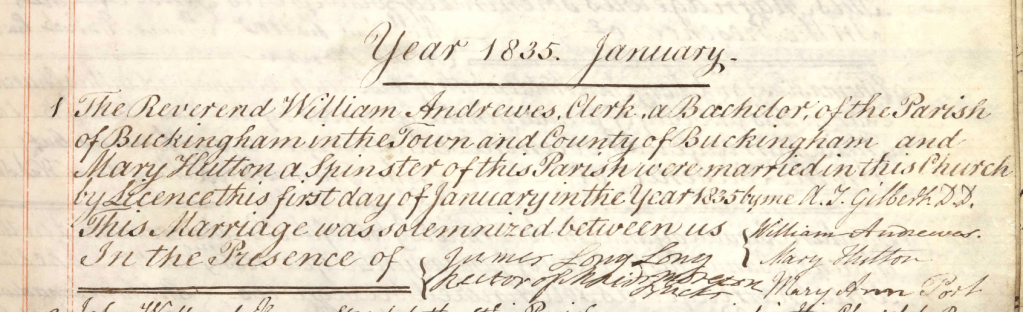 Year 1835. January.
1 The Reverend William Andrewes, Clerk, a Bachelor, of the Parish
of Buckingham in the Town and County of Buckingham and
Mary Hutton a Spinster of this Parish were married in this Church
by Licence this first day of January in the Year 1835 by me A. T. Gilbert D.D.
This Marriage was solemnized between us William Andrewes.
Mary Hutton
In the Presence of James Long Long
Rector of Maids Moreton
Bucks
Mary Ann Port